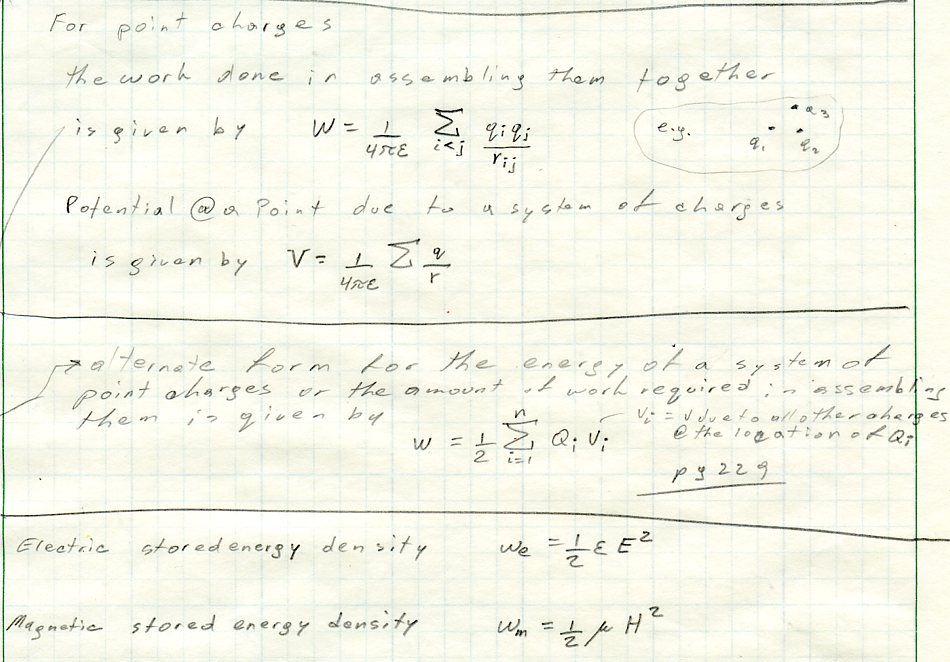 For point charges
the work done in assembling them together
is given by W = 1/4πε Σ i<j qi qj / rij
e.g. q1 q2 q3
Potential @ a Point due to a system of charges
is given by V = 1/4πε Σ q/r
→ alternate form for the energy of a system of
point charges or the amount of work required in assembling
them is given by
W = 1/2 Σ i=1 n Qi Vi
Vi = V due to all other charges
@ the location of Qi
pg 229
Electric stored energy density we = 1/2 ε E²
Magnetic stored energy density wm = 1/2 μ H²